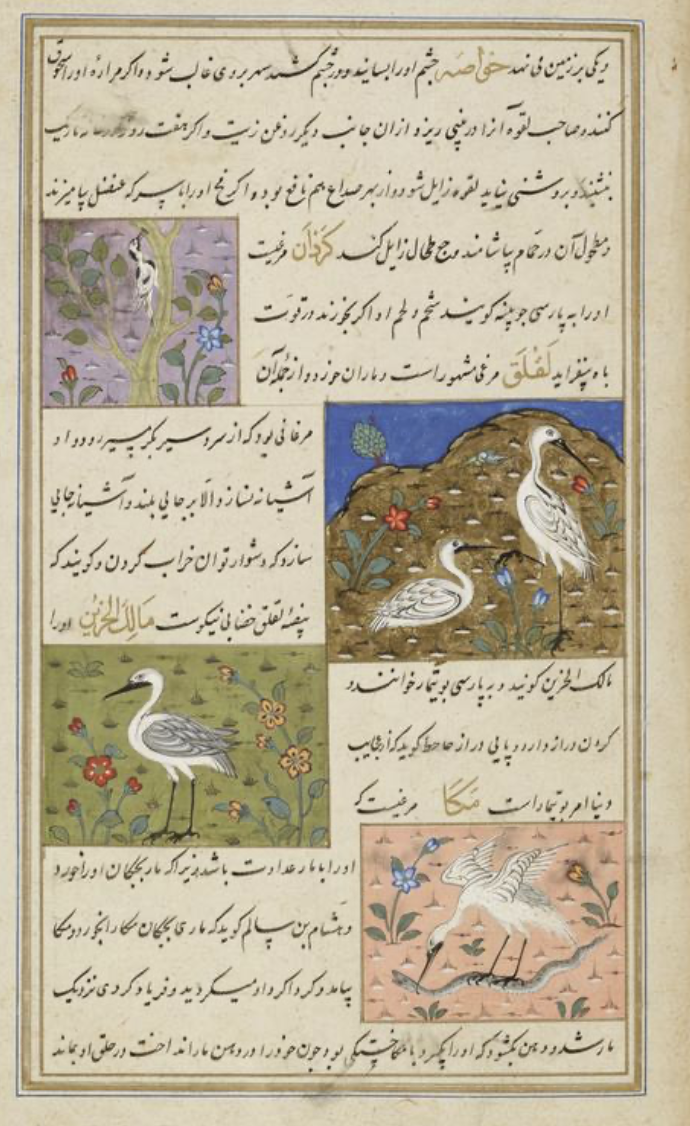 و یکی بر زمین می نهد خواصه چشم او را بسایند و در چشم کشند سهر بر وی غالب شود و اگر مراره او را
کنند و صاحب لقوه آنرا در بینی ریزد و از ان جانب دیگر روغن زیت و اگر هفت روز
بنشیند و بروشنی نیاید لقوه زایل شود و از بهر صداع هم نافع بود و اگر مخ او را با سرکه عنصل بیامیزند
و مطحول آن در حمام بیاشامند وجع طحال زایل کند مرغیست
او را به پارسی گویند شحم و لحم او اگر بخورند در قوت
باه بیفزاید لقلق مرغی مشهور است و ماران خورد و از جمله آن
مرغانی بود که از سردسیر بگرمسیر رود و او
آشیانه نسازد الا بر جایی بلند و آشیانه جایی
سازد که دشوار توان خراب کردن و گویند که
بیضهٔ لقلق خضابی نیکوست مالک الحزین او را
مالک الحزین گویند و به پارسی بوتیمار خوانند و
گردن دراز دارد و پایی دراز جاحظ گوید که از عجایب
دنیا امر بوتیمار است مکا مرغیست که
او را با مار عداوت باشد زیرا که مار بچگان او را خورد
و هشام بن سالم گوید که ماری بچگان مکا را بخورد و مکا
بیامد و گرداگرد او میگردید و فریاد کردی نزدیک
مار شد و دهن بگشود که او را بگیرد با مکا بود چون خود را در دهن مار انداخت در حلق او بماند